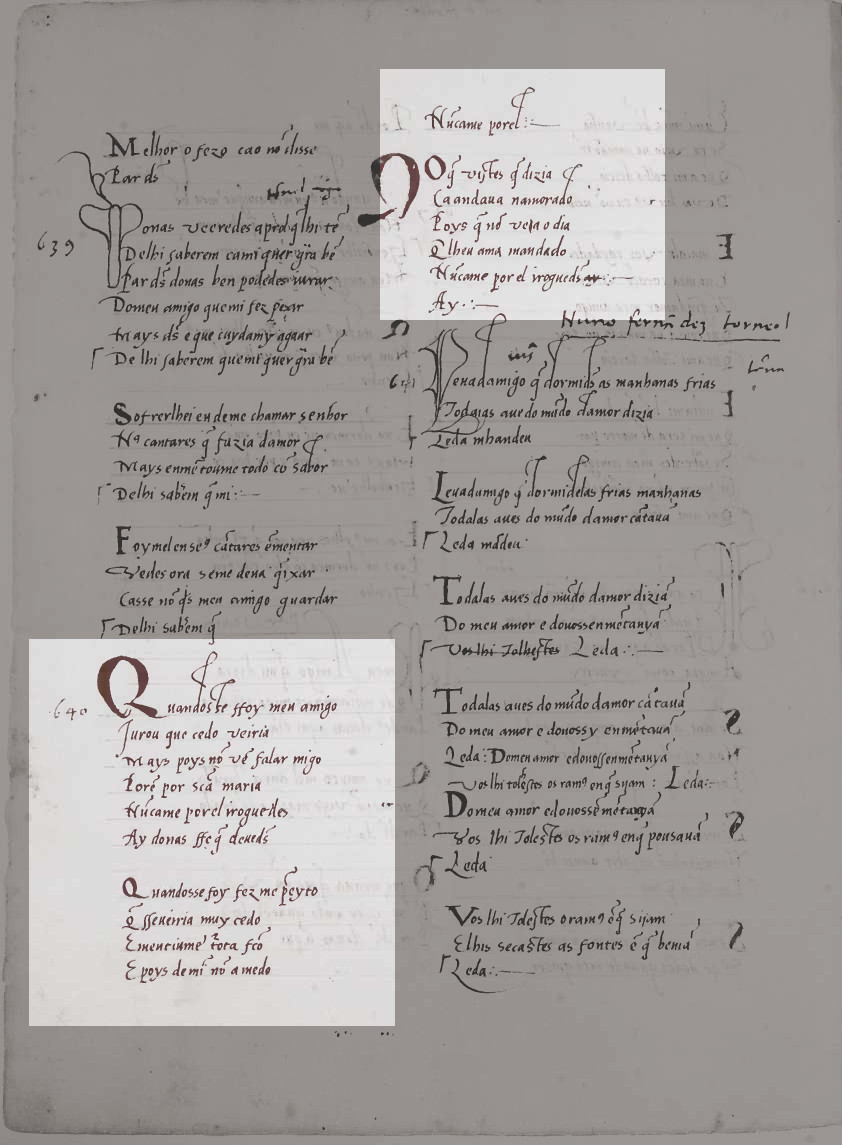 Melhor o fezo cao nō disse
Par ds̄
639
Donas veeredes a prol q̄ lhi tē
Delhi saberem cami quer grã bē
Par ds̄ donas ben podedes iurar
Domeu amigo que mi fez pesar
Mays ds̄ e que cuyda mȳ a gāar
De lhi saberem que mi quer grã bē
Sofrerlhei eu de me chamar senhor
Nꝰ cantares q̄ fazia damor
Mays enmētoume todo cō sabor
Delhi sabēm q̄ mi
Foymel en seꝰ cātares ēmentar
Vedes ora seme deua q̄ixar
Casse nō q̄s meu amigo guardar
Delhi sabēm q̄
640
Quandosse ffoy meu amigo
Jurou que cedo veiria
Mays poys nō vē falar migo
Porē por scā maria
Nūcame por el roguedes
Ay donas ffe q̄ deueds̄
Quandosse foy fez me p̄eyto
Q̄ sseueiria muy cedo
E mentiume torta fcō
E poys de mī nō a medo
Nūcame por el
O q̄ vistes q̄ dizia
Ca andaua namorado
Poys q̄ nō veo o dia
Q̄ lheu auia mandado
Nūcame por el rogueds̄
Ay
Nuno fernādez torneol
641
Leuad amigo q̄ dormides as manhanas frias
Todalas aues do mūdo damor dizia
Leda mhandeu
Leuadamigo q̄ dormidelas frias manhanas
Todalas aues do mūdo damor cātauā
Leda mādeu
Todalas aues do mūdo damor diziā
Do meu amor e douossenmētauyā
Vos lhi tolhestes Leda
Todalas aues do mūdo damor cātauā
Do meu amor e douossy enmētauā
Leda Domeu amor edouossenmētauyā
vos lhi tolestes os ramꝰ en q̄ sijam Leda
Domeu amor edouossēmētauyā
Vos lhi tolestes os ramꝰ en q̄ pousauā
Leda
Vos lhi tolestes o ramꝰ ē q̄ sijam
E lhis secastes as fontes ē q̄ beuiā
Leda